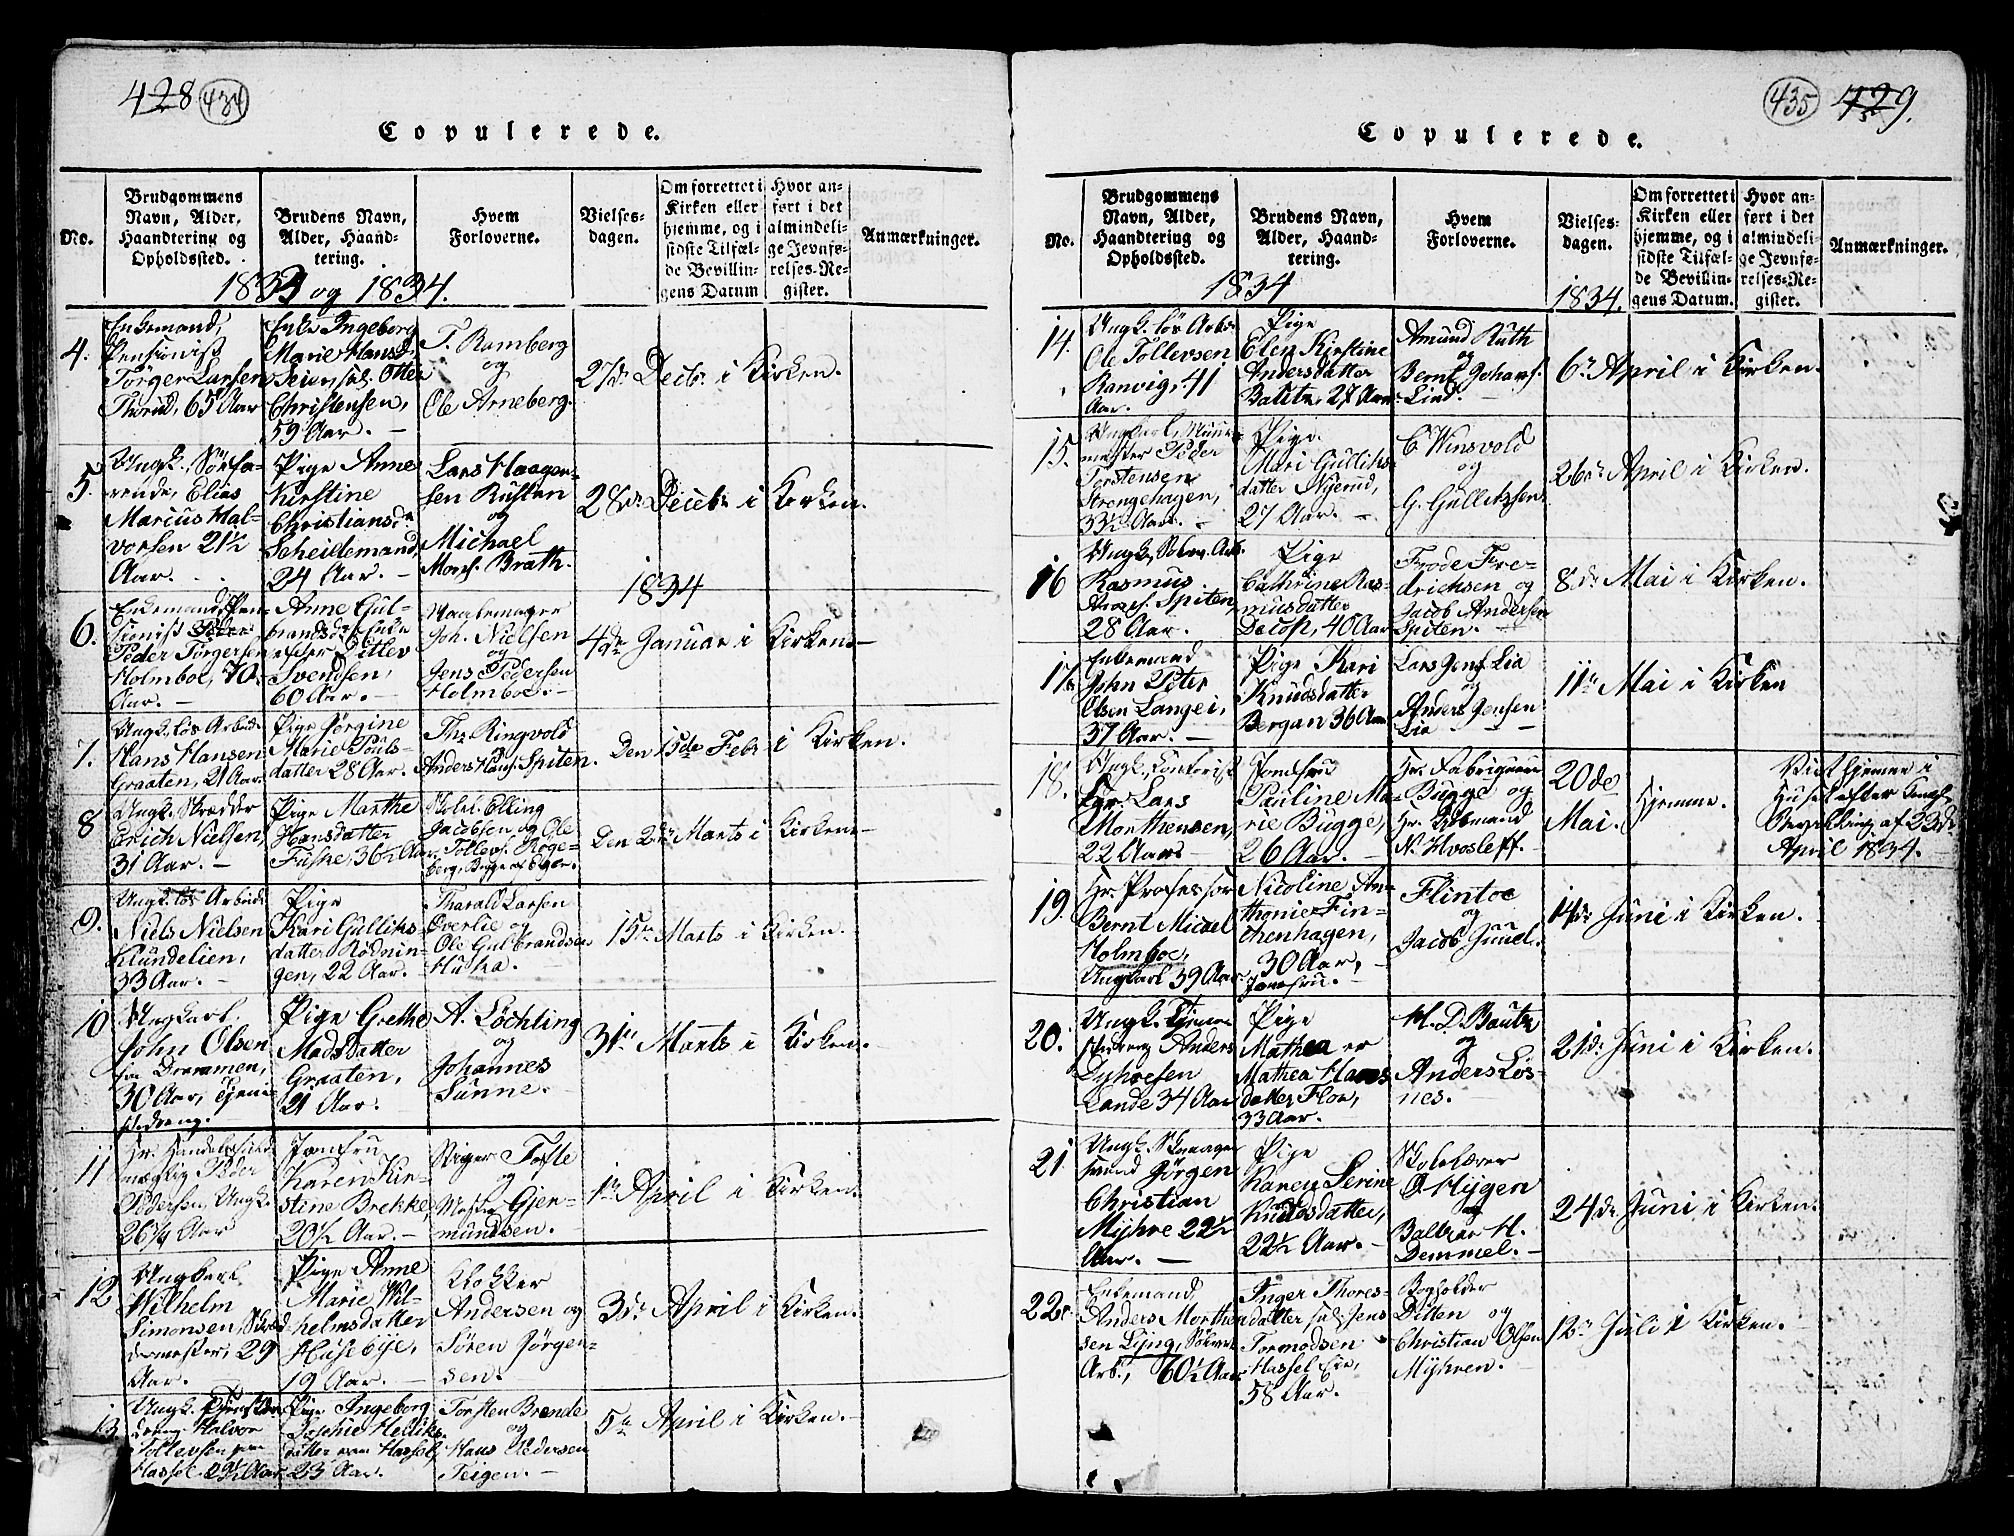 428 434
Copulerede.
No.
Brudgommens
Navn, Alder,
Haandtering og
Opholdssted.
Brudens Navn,
Alder, Haand-
tering.
Hvem
Forloverne.
Vielses-
dagen.
Om forrettet i
Kirken eller
hjemme, og i
sidste Tilfæl-
de Bevillin-
gens Datum
Hvor an-
ført i det
almindeli-
ge Jevnfø-
relses-Re-
gister.
Anmærkninger.
1833 og 1834.
4.
Enkemand,
Pensionist
Törger Larsen
Thorud, 65 Aar
Enke Ingeborg
Marie Hansd.
Seier, sal. Otter
Christensen,
59 Aar. -
T. Ramberg
og
Ole Arneberg.
27de Decbr. i Kirken.
5.
Elias
Marcus Hal-
vorsen 21½
Aar.
Pige Anne
Kirstine
Christiansd.
Scheidemand,
24 Aar. -
Lars Haagen-
sen Rusten
og
Michael
Mons. Brath.
28de Decebr i Kirken.
1834
6.
Enkemand, Pen-
sionist Peder
Peder Törgersen
Holmboe, 70
Aar. -
Anne Gul-
brandsdr Enke
efter Ditlev
Svendsen,
60 Aar. -
Joh. Nielsen
og
Jens Pedersen
Holmboe. -
4de Januar i Kirken. -
7.
Ungk. løs Arbeid.
Hans Hansen
Graaten, 21 Aar.
Pige Jörgine
Marie Pouls-
datter 28 Aar.
Ths Ringvold
Anders Hans. Spiten.
Den 15de Febr i Kirken.
8
Ungk. Skrædder
Erich Nielsen,
31 Aar. -
Pige Marthe
Hansdatter
Fuske, 36½ Aar.
Elling
Jacobsen og Ole
Tollevs. Roge-
berg,
Den 2den Marts i Kirken. -
9.
Ungk. løs Arbeid.
Niels Nielsen
Klundelien,
33 Aar. -
Pige
Kari Gulliks-
datter Rödnin-
gen, 22 Aar. -
Tharald Larsen
Överlie og
Ole Gulbrandsen
Huka. -
15de Marts i Kirken.
10
Ungkarl
John Olsen
fra Drammen,
30 Aar, Tjene-
stedreng.
Pige Grethe
Madsdatter
Graaten,
21 Aar.
A. Löchting
og
Johannes
Sünne. -
31te Marts i Kirken. -
11
Peder
Pedersen, Ungk.
26¼ Aar
Jomfru
Karen Kir-
stine Brekke,
20½ Aar. -
Tofte
og
Gjer-
mundsen.
1ste April i Kirken.
12
Ungkarl
Wilhelm
Simonsen, Skræd-
dermester, 29
Aar.
Pige Anne
Marie Wil-
helmsdatter
Husebye,
19 Aar. -
Klokker
Andersen og
Sören Jörgen-
sen.
3de April i Kirken.
13
Ungk. Tjeneste-
dreng Halvor
Tollevsen
Hassel 29½ Aar
Pige Ingeborg
Sophie Helliks-
datter Hassel
23 Aar.
Torsten Brende
og
Hans Pedersen
Teigen. -
5te April i Kirken. -
435 429.
Copulerede.
No.
Brudgommens
Navn, Alder,
Haandtering og
Opholdssted.
Brudens Navn,
Alder, Haand-
tering.
Hvem
Forloverne.
Vielses-
dagen.
Om forrettet i
Kirken eller
hjemme, og i
sidste Tilfæl-
de Bevillin-
gens Datum.
Hvor an-
ført i det
almindeli-
ge Jevnfø-
relses-Re-
gister.
Anmærkninger.
1834
1834.
14.
Ungk. løs Arb.
Ole Tollevsen
Ranvig, 41
Aar.
Pige
Elen Kirstine
Andersdatter
27 Aar
Amund Ruth
og
Bernt Johans.
Lied. -
6te April i Kirken.
15.
Ungkarl, Muur-
mester Peder
Torstensen
Strengehagen,
33½ Aar. -
Pige
Mari Gulliks-
datter Nyerud,
27 Aar. -
C Winsvold
og
G. Gulliksen
26de April i Kirken.
16
Ungk. Sølvv. Arb.
Rasmus
Spiten,
28 Aar. -
Pige
Cathrine Ras-
musdatter
Decop, 40 Aar
Frode Fre-
drichsen og
Jacob Andersen
Spiten. -
8de Mai i Kirken.
17
Enkemand
John Peter
Olsen Lange,
37 Aar. -
Pige Kari
Knudsdatter
Bergan 36 Aar
Lars Jens. Lia
og
Anders Jensen
Lia - - -
11te Mai i Kirken
18.
Ungk. Contorist
Hr. Lars
Morthensen,
22 Aar
Jomfru
Pauline Ma-
rie Bugge,
26 Aar. -
Hr.
Bugge og
Hr. Kiøbmand
N. Hvosleff.
20de
Mai.
Hjemme.
Viet hjemme i
Huset efter
Bevilling af 23de
April 1834.
19.
Hr. Professor
Bernt Micael
Holmboe,
Ungkarl 39 Aar.
Nicoline An-
thonie Fin-
chenhagen,
30 Aar, -
Jomfru.
Flintoe
og
Jacob Juuel.
14de Juni i Kirken.
20.
Ungk. Tjene-
stedreng Anders
Dyhresen
Lande 34 Aar
Pige
Mathea er
Mathea Hans-
datter Floe,
33 Aar.
H. D. Bautz
og
Anders Lös-
nes. -
21de Juni i Kirken.
21.
Ungk. Skomager-
svend Jörgen
Christian
Myhre 22½
Aar. -
Pige
Karen Serine
Knudsdatter,
22½ Aar. -
Skolelærer
O Hygen
og
Balzar H.
Demmel. -
24de Juni i Kirken.
22.
Enkemand
Anders Morthen-
sen Lijng, Sølvv.
Arb., 60½ Aar
Inger Thores-
datter sal. Jens
Tormodsen
Hassel Eie,
58 Aar.
Bogholder
Ditten og
Christian Olsen
Myhren. -
12te Juli i Kirken.